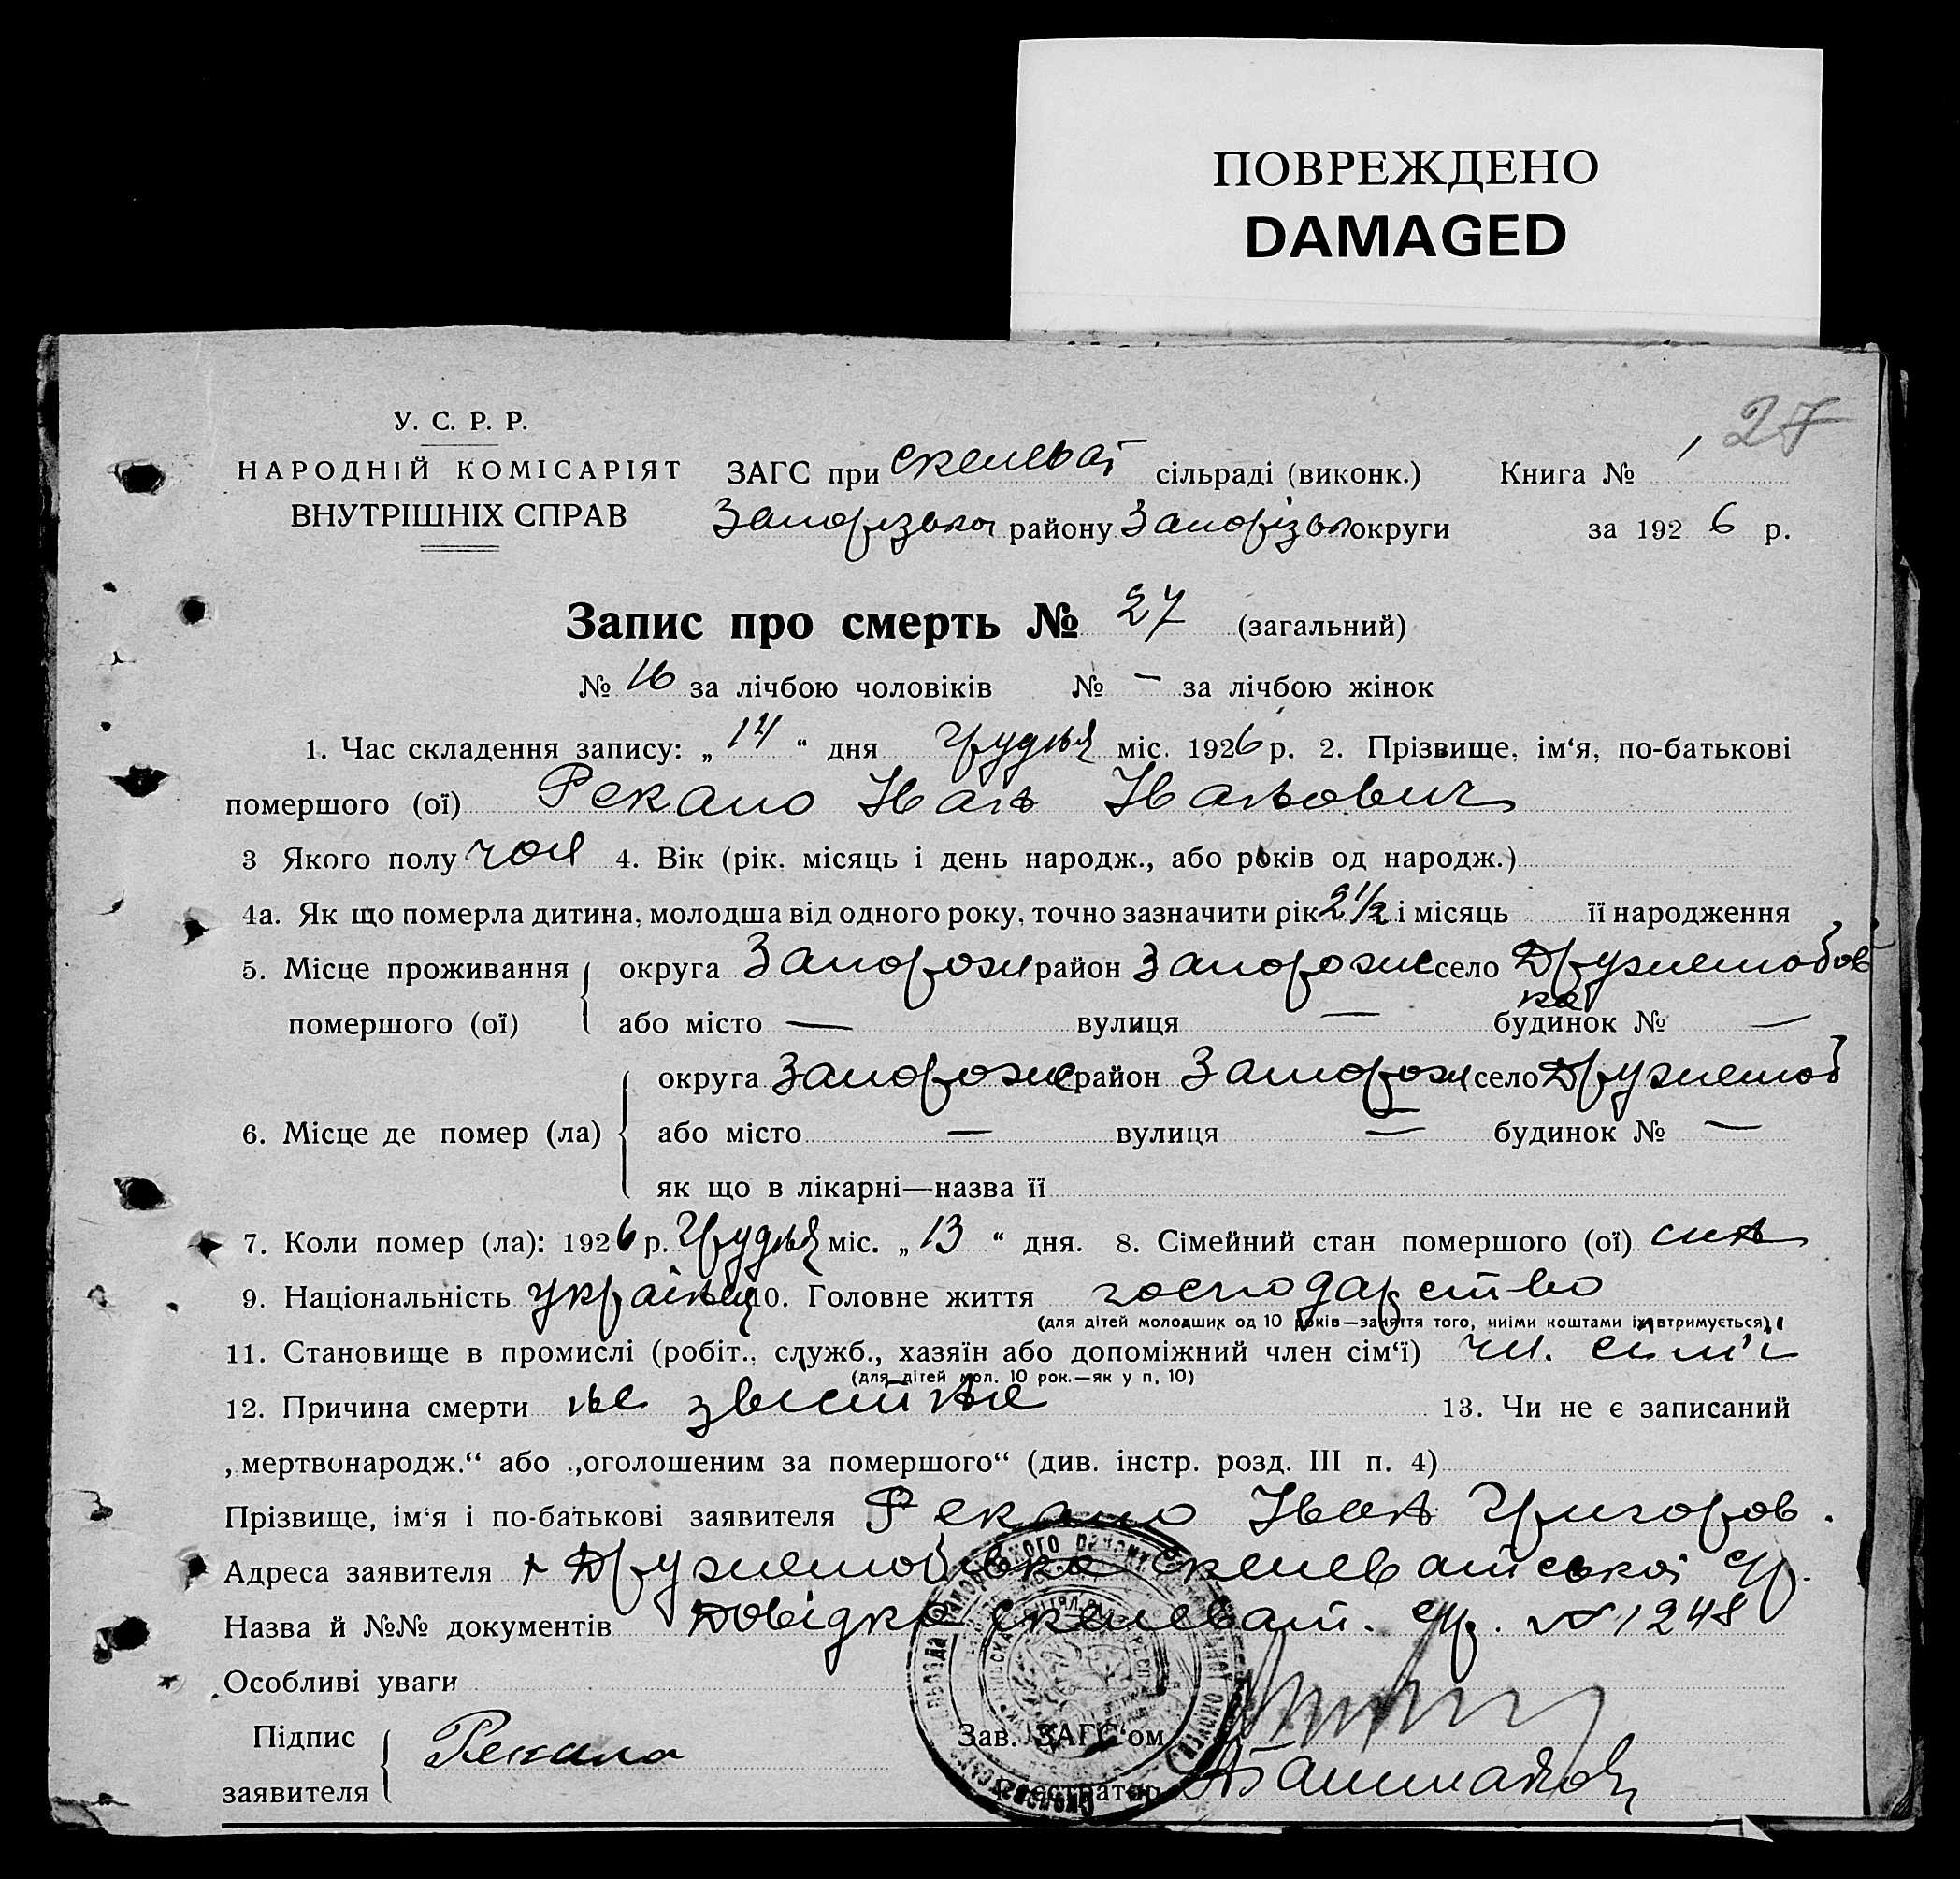 ПОВРЕЖДЕНО
DAMAGED
27
У. С. Р. Р.
НАРОДНІЙ КОМІСАРІЯТ
ВНУТРІШНІХ СПРАВ
ЗАГС при скелеват сільраді (виконк.) Книга №
району округи за 1926 р.
Запис про смерть № 27 (загальний)
№ 16 за лічбою чоловіків № — за лічбою жінок
1. Час складення запису: „14“ дня грудня міс. 1926 р. 2. Прізвище, ім‘я, по-батькові
помершого (ої) Рекало Іван Іванович
3 Якого полу чол 4. Вік (рік. місяць і день народж., або років од народж.)
4а. Як що померла дитина, молодша від одного року, точно зазначити рік 2 1/2 і місяць її народження
5. Місце проживання округа Запорож район Запорож село Дружелюбов
ка
помершого (ої) або місто — вулиця — будинок № —
округа Запорож район Запорож село Дружелюб
6. Місце де помер (ла) або місто — вулиця — будинок № —
як що в лікарні—назва її
7. Коли помер (ла): 1926 р. Грудня міс. „13“ дня. 8. Сімейний стан помершого (ої) син
9. Національність українец 10. Головне життя господарство
(для дітей молодших од 10 років—заняття того, чиїми коштами їх втримується)
11. Становище в промислі (робіт., служб., хазяїн або допоміжний член сім‘ї) чл. сим'ї
(для дітей мол. 10 рок.—як у п. 10)
12. Причина смерти не звистне 13. Чи не є записаний
„мертвонародж.“ або „оголошеним за помершого“ (див. інстр. розд. III п. 4)
Прізвище, ім‘я і по-батькові заявителя Рекало Іван Григоров.
Адреса заявителя Дружелюбовка скелеватської
Назва й №№ документів Довідка скелеват. № 1248
Особливі уваги
Підпис
заявителя Рекало
Зав. ЗАГС‘ом
Реєстратор